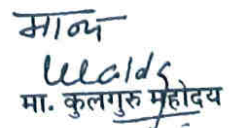 मान्य
मा. कुलगुरु महोदय